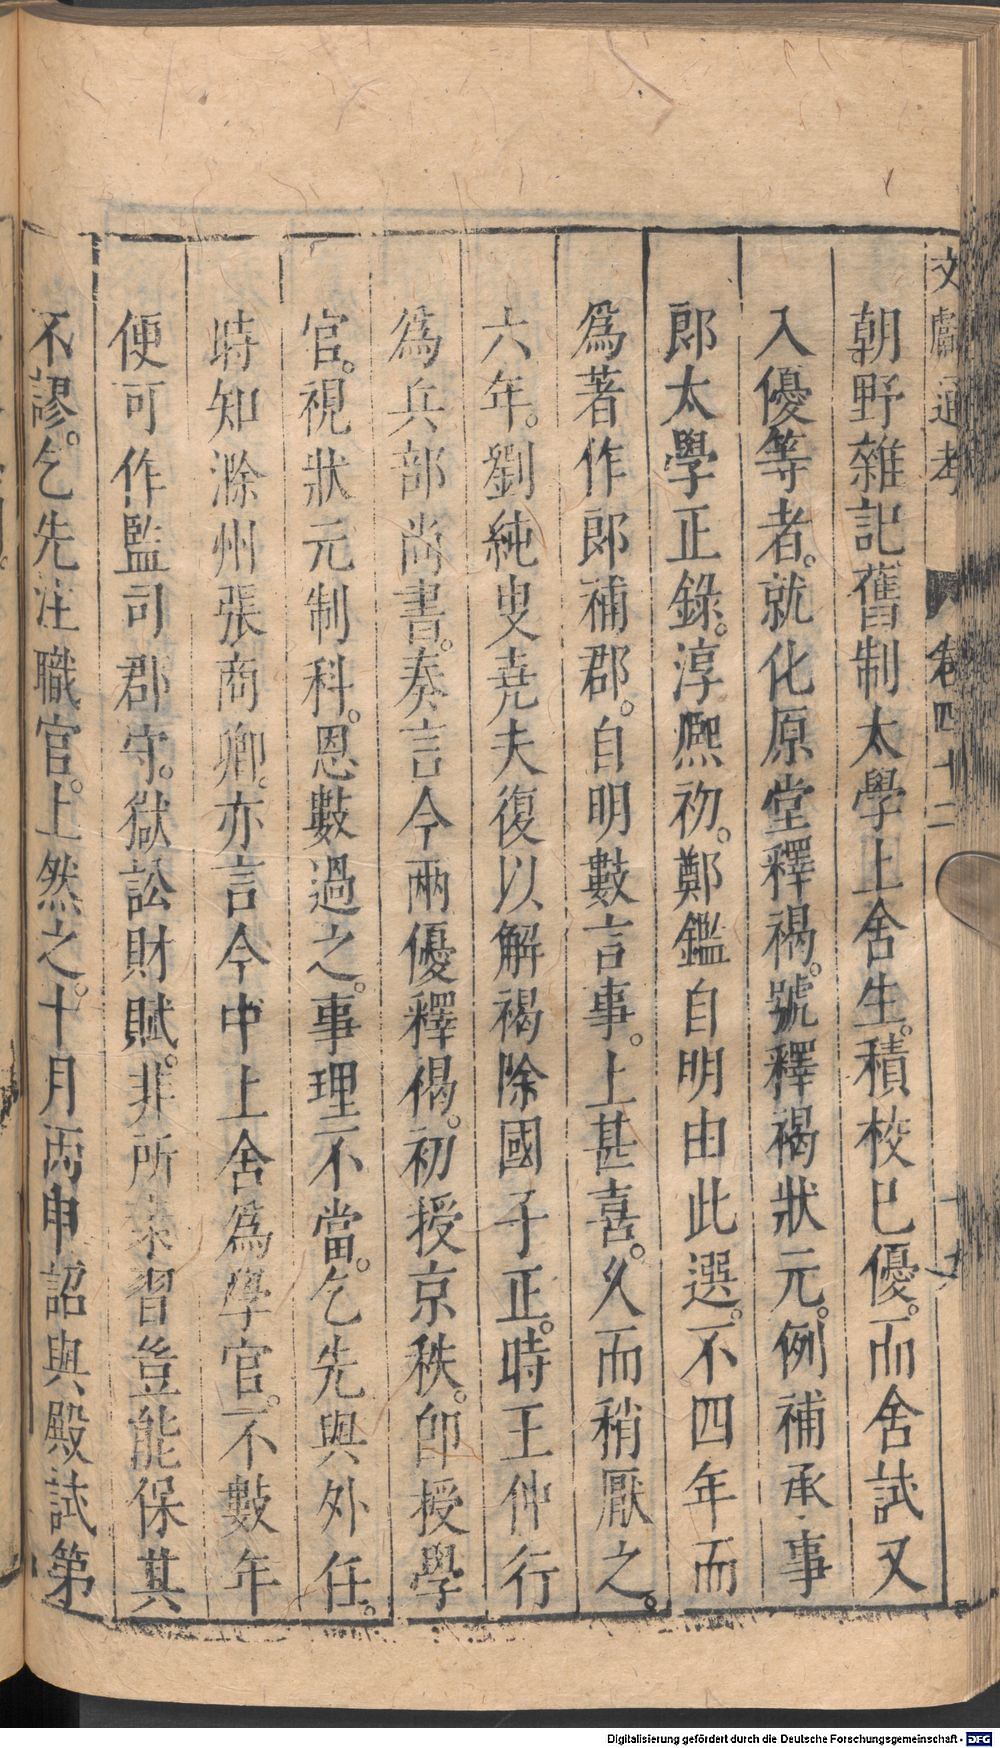 文獻通考 卷四十二
朝野雜記舊制太學上舍生。積校巳優。而舍試又
入優等者。就化原堂釋褐。號釋褐狀元。例補承事
郎太學正錄。淳熈初。鄭鑑自明由此選。不四年而
爲著作郎補郡。自明數言事。上甚喜。久而稍厭之。
六年。劉純叟堯夫復以解褐除國子正。時王仲行
爲兵部尚書。奏言今兩優釋偈。初授京秩。卽授學
官。視狀元制科。恩數過之。事理不當。乞先與外任。
時知滁州張商卿。亦言今中上舍爲學官。不數年
便可作監司郡守。獄訟財賦。非所素習豈能保其
不謬。乞先注職官。上然之。十月丙申詔與殿試第
Digitalisierung gefördert durch die Deutsche Forschungsgemeinschaft - DFG